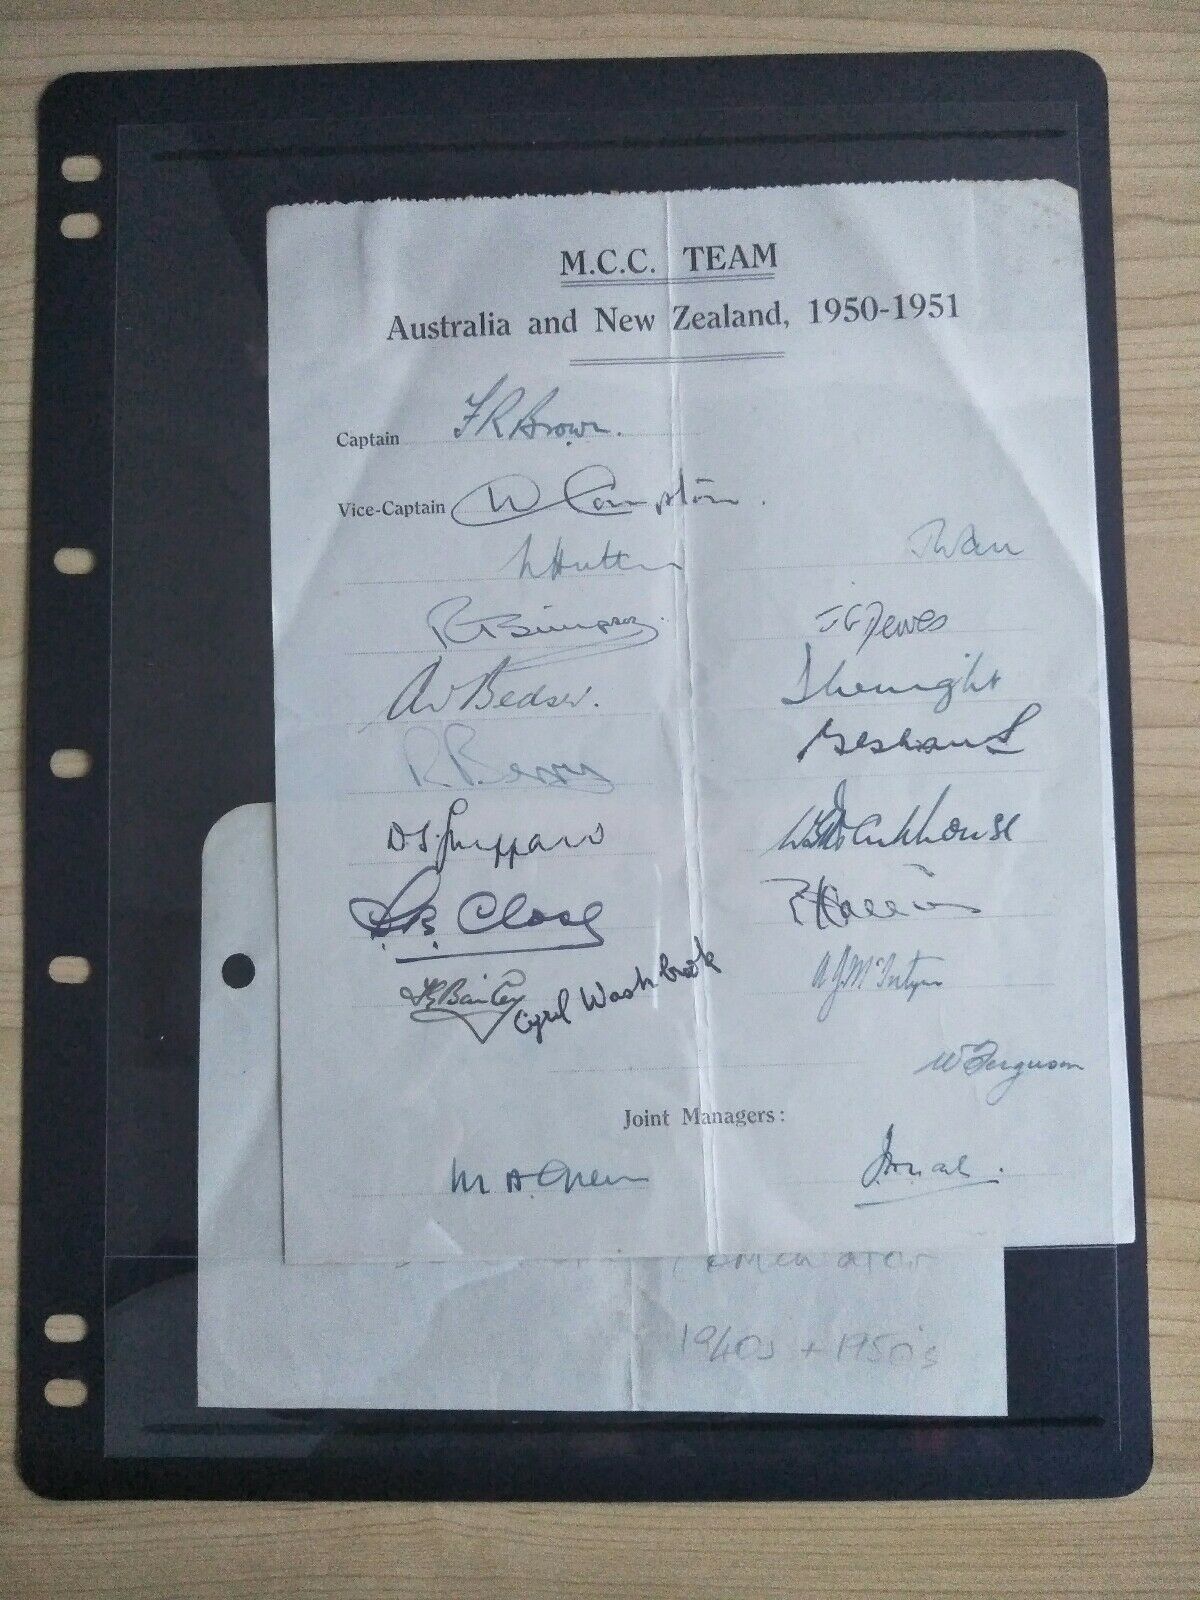 M.C.C. TEAM
Australia and New Zealand, 1950-1951
Captain F R Brown.
Vice-Captain D Compton.
L Hutton J Warr
R T Simpson J G Dewes
A V Bedser. D V P Wright
R Berry
D S Sheppard W G A Parkhouse
D. B. Close
T E Bailey Cyril Washbrook A J McIntyre
W Ferguson
Joint Managers:
M A Green J. A. Nash.
1940s + 1950's